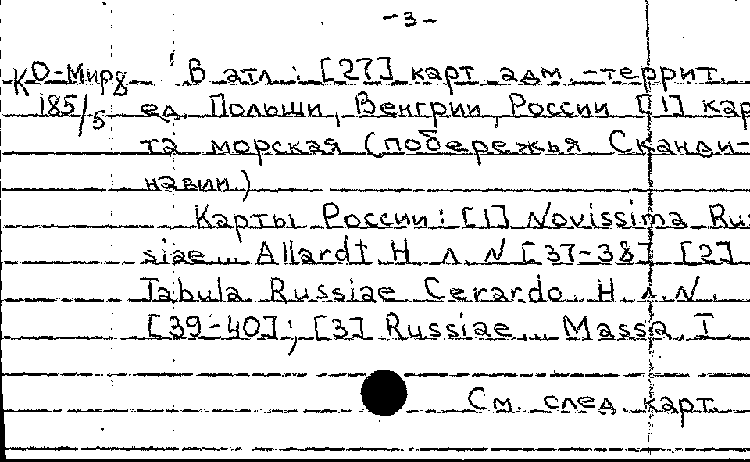 -3-
КО-Мира В атл.: [27] карт адм.-террит.
185/5 ед. Польши, Венгрии, России [1] кар
та морская (побережья Сканди-
навии)
Карты России: [1] Novissima Rus
siae... Allardt H л. N [37-38] [2]
Tabula Russiae Cerardo H л. N.
[39-40]; [3] Russiae... Massa I
См. след. карт.